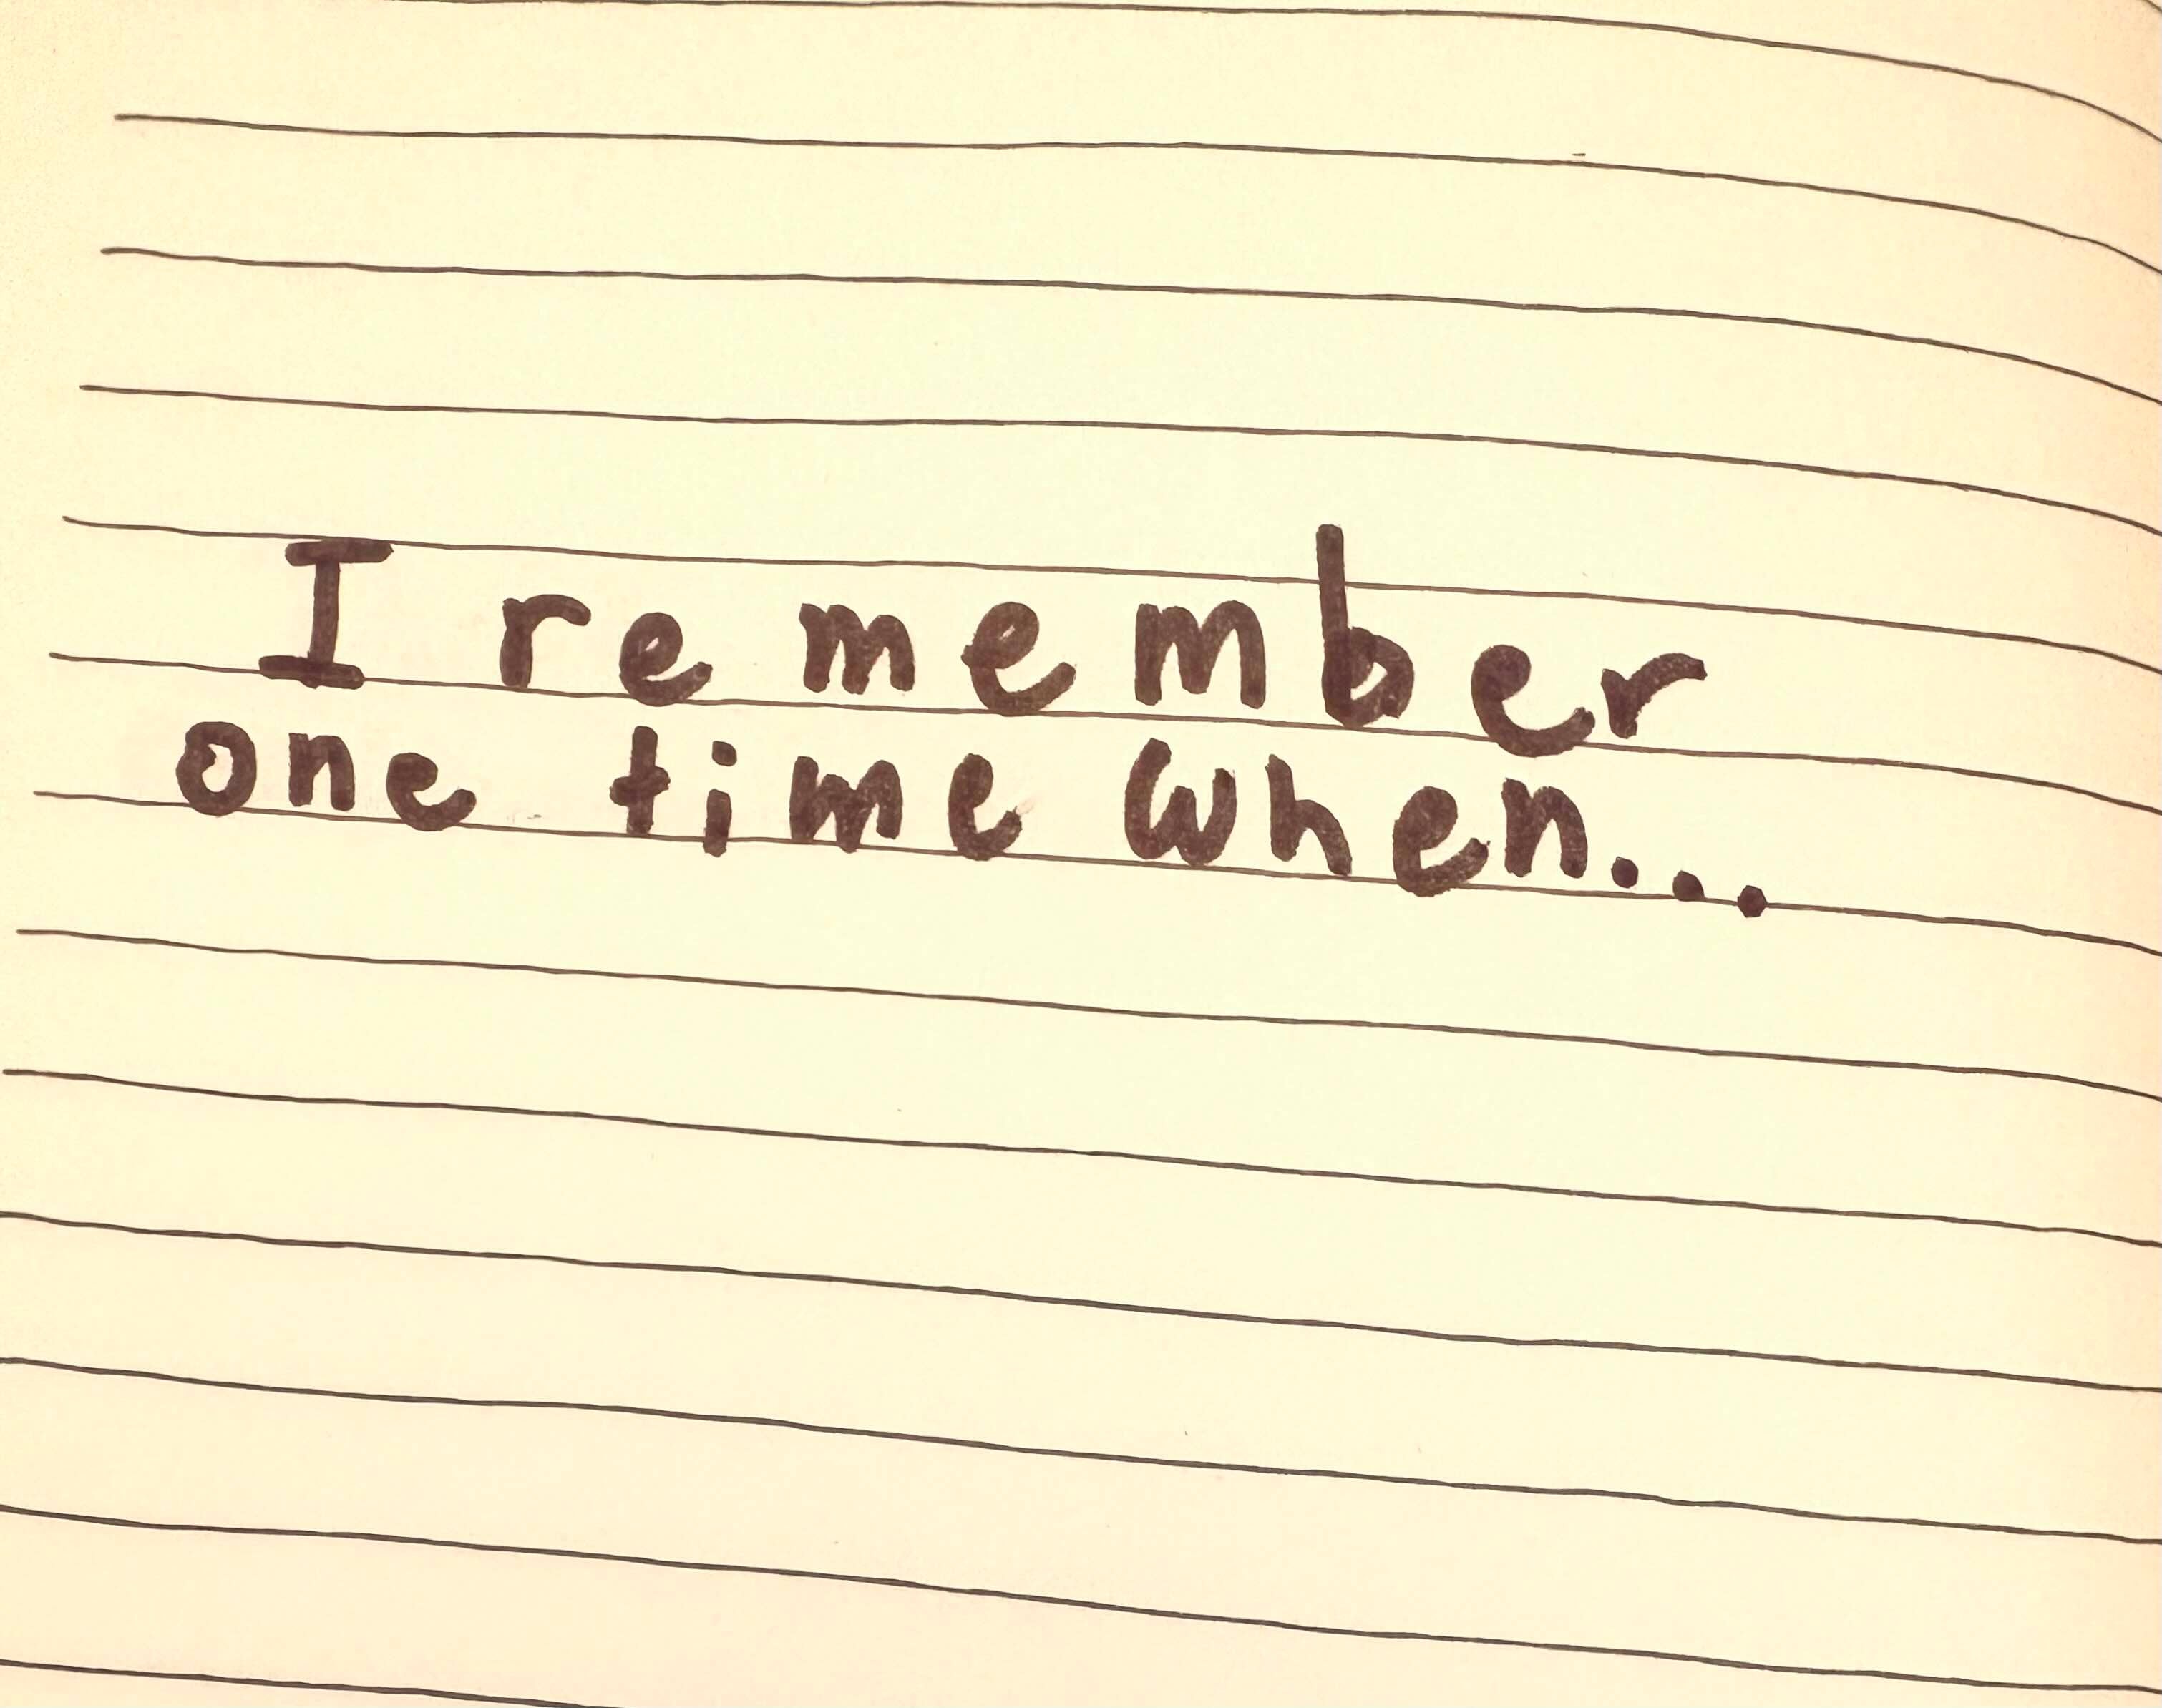 I remember
one time when...